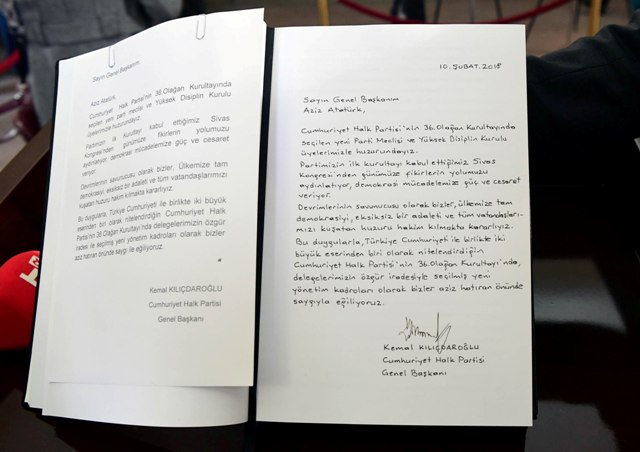 Sayın Genel Başkanım,
Aziz Atatürk,
Cumhuriyet Halk Partisi'nin 36.Olağan Kurultayında
seçilen yeni parti meclisi ve Yüksek Disiplin Kurulu
üyelerimizle huzurundayız.
Partimizin ilk kurultayı kabul ettiğimiz Sivas
Kongresi'nden günümüze fikirlerin yolumuzu
aydınlatıyor, demokrasi mücadelemize güç ve cesaret
veriyor.
Devrimlerinin savunucusu olarak bizler, Ülkemize tam
demokrasiyi, eksiksiz bir adaleti ve tüm vatandaşlarımızı
kuşatan huzuru hakim kılmakta kararlıyız.
Bu duygularla, Türkiye Cumhuriyeti ile birlikte iki büyük
eserinden biri olarak nitelendirdiğin Cumhuriyet Halk
Partisi'nin 36.Olağan Kurultayı'nda delegelerimizin özgür
iradesi ile seçilmiş yeni yönetim kadroları olarak bizler
aziz hatıran önünde saygı ile eğiliyoruz.
"
Kemal KILIÇDAROĞLU
Cumhuriyet Halk Partisi
Genel Başkanı
10. ŞUBAT. 2018
Sayın Genel Başkanım
Aziz Atatürk,
Cumhuriyet Halk Partisi'nin 36.Olağan Kurultayında
seçilen yeni Parti Meclisi ve Yüksek Disiplin Kurulu
üyelerimizle huzurundayız.
Partimizin ilk kurultayı kabul ettiğimiz Sivas
Kongresi'nden günümüze fikirlerin yolumuzu
aydınlatıyor, demokrasi mücadelemize güç ve cesaret
veriyor.
Devrimlerinin savunucusu olarak bizler, ülkemize tam
demokrasiyi, eksiksiz bir adaleti ve tüm vatandaşları-
mızı kuşatan huzuru hakim kılmakta kararlıyız.
Bu duygularla, Türkiye Cumhuriyeti ile birlikte iki
büyük eserinden biri olarak nitelendirdiğin
Cumhuriyet Halk Partisi'nin 36.Olağan Kurultayı'nda,
delegelerimizin özgür iradesiyle seçilmiş yeni
yönetim kadroları olarak bizler aziz hatıran önünde
saygıyla eğiliyoruz.
Kemal KILIÇDAROĞLU
Cumhuriyet Halk Partisi
Genel Başkanı